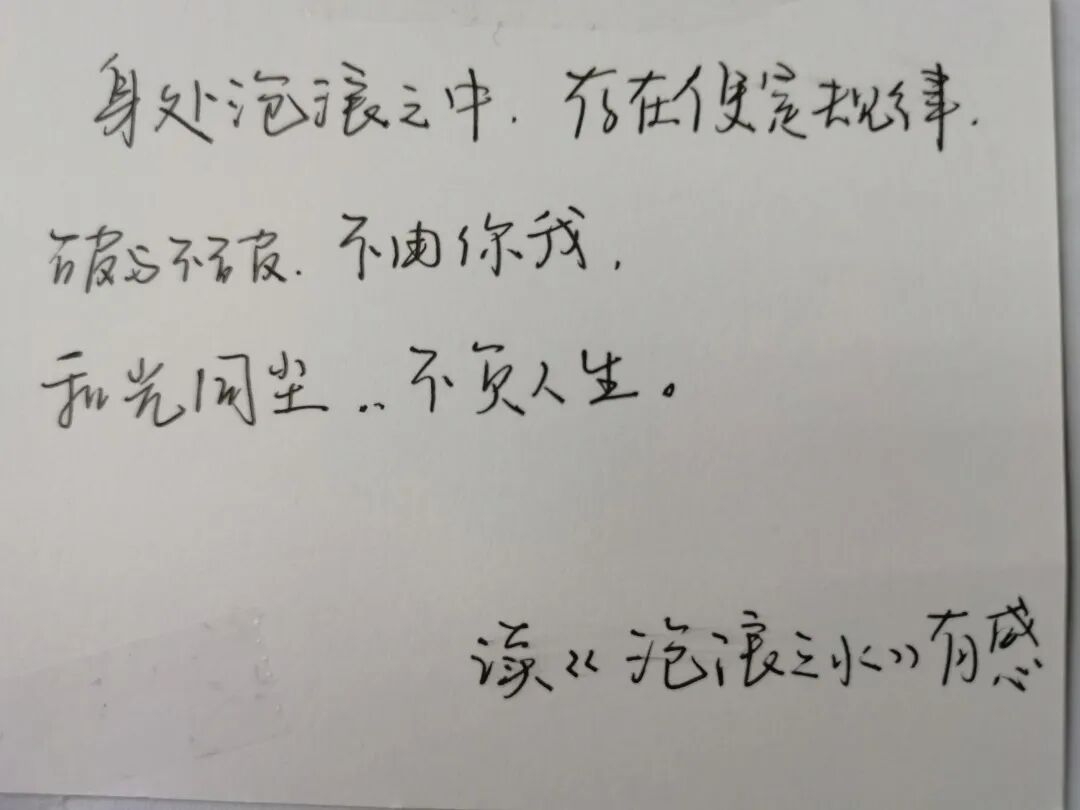 身处泡浪之中.存在便是规律.
破与不破.不由你我,
和光同尘..不负人生。
读《泡浪之水》有感